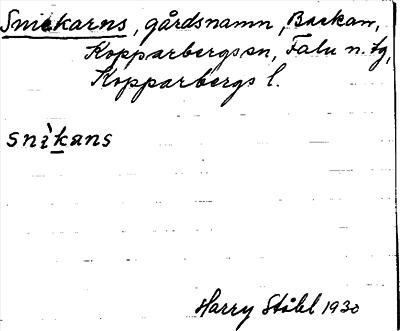 Snickarns, gårdsnamn, Backan,
Kopparbergs sn, Falu n. tg,
Kopparbergs l.
snìkans
Harry Ståhl 1930